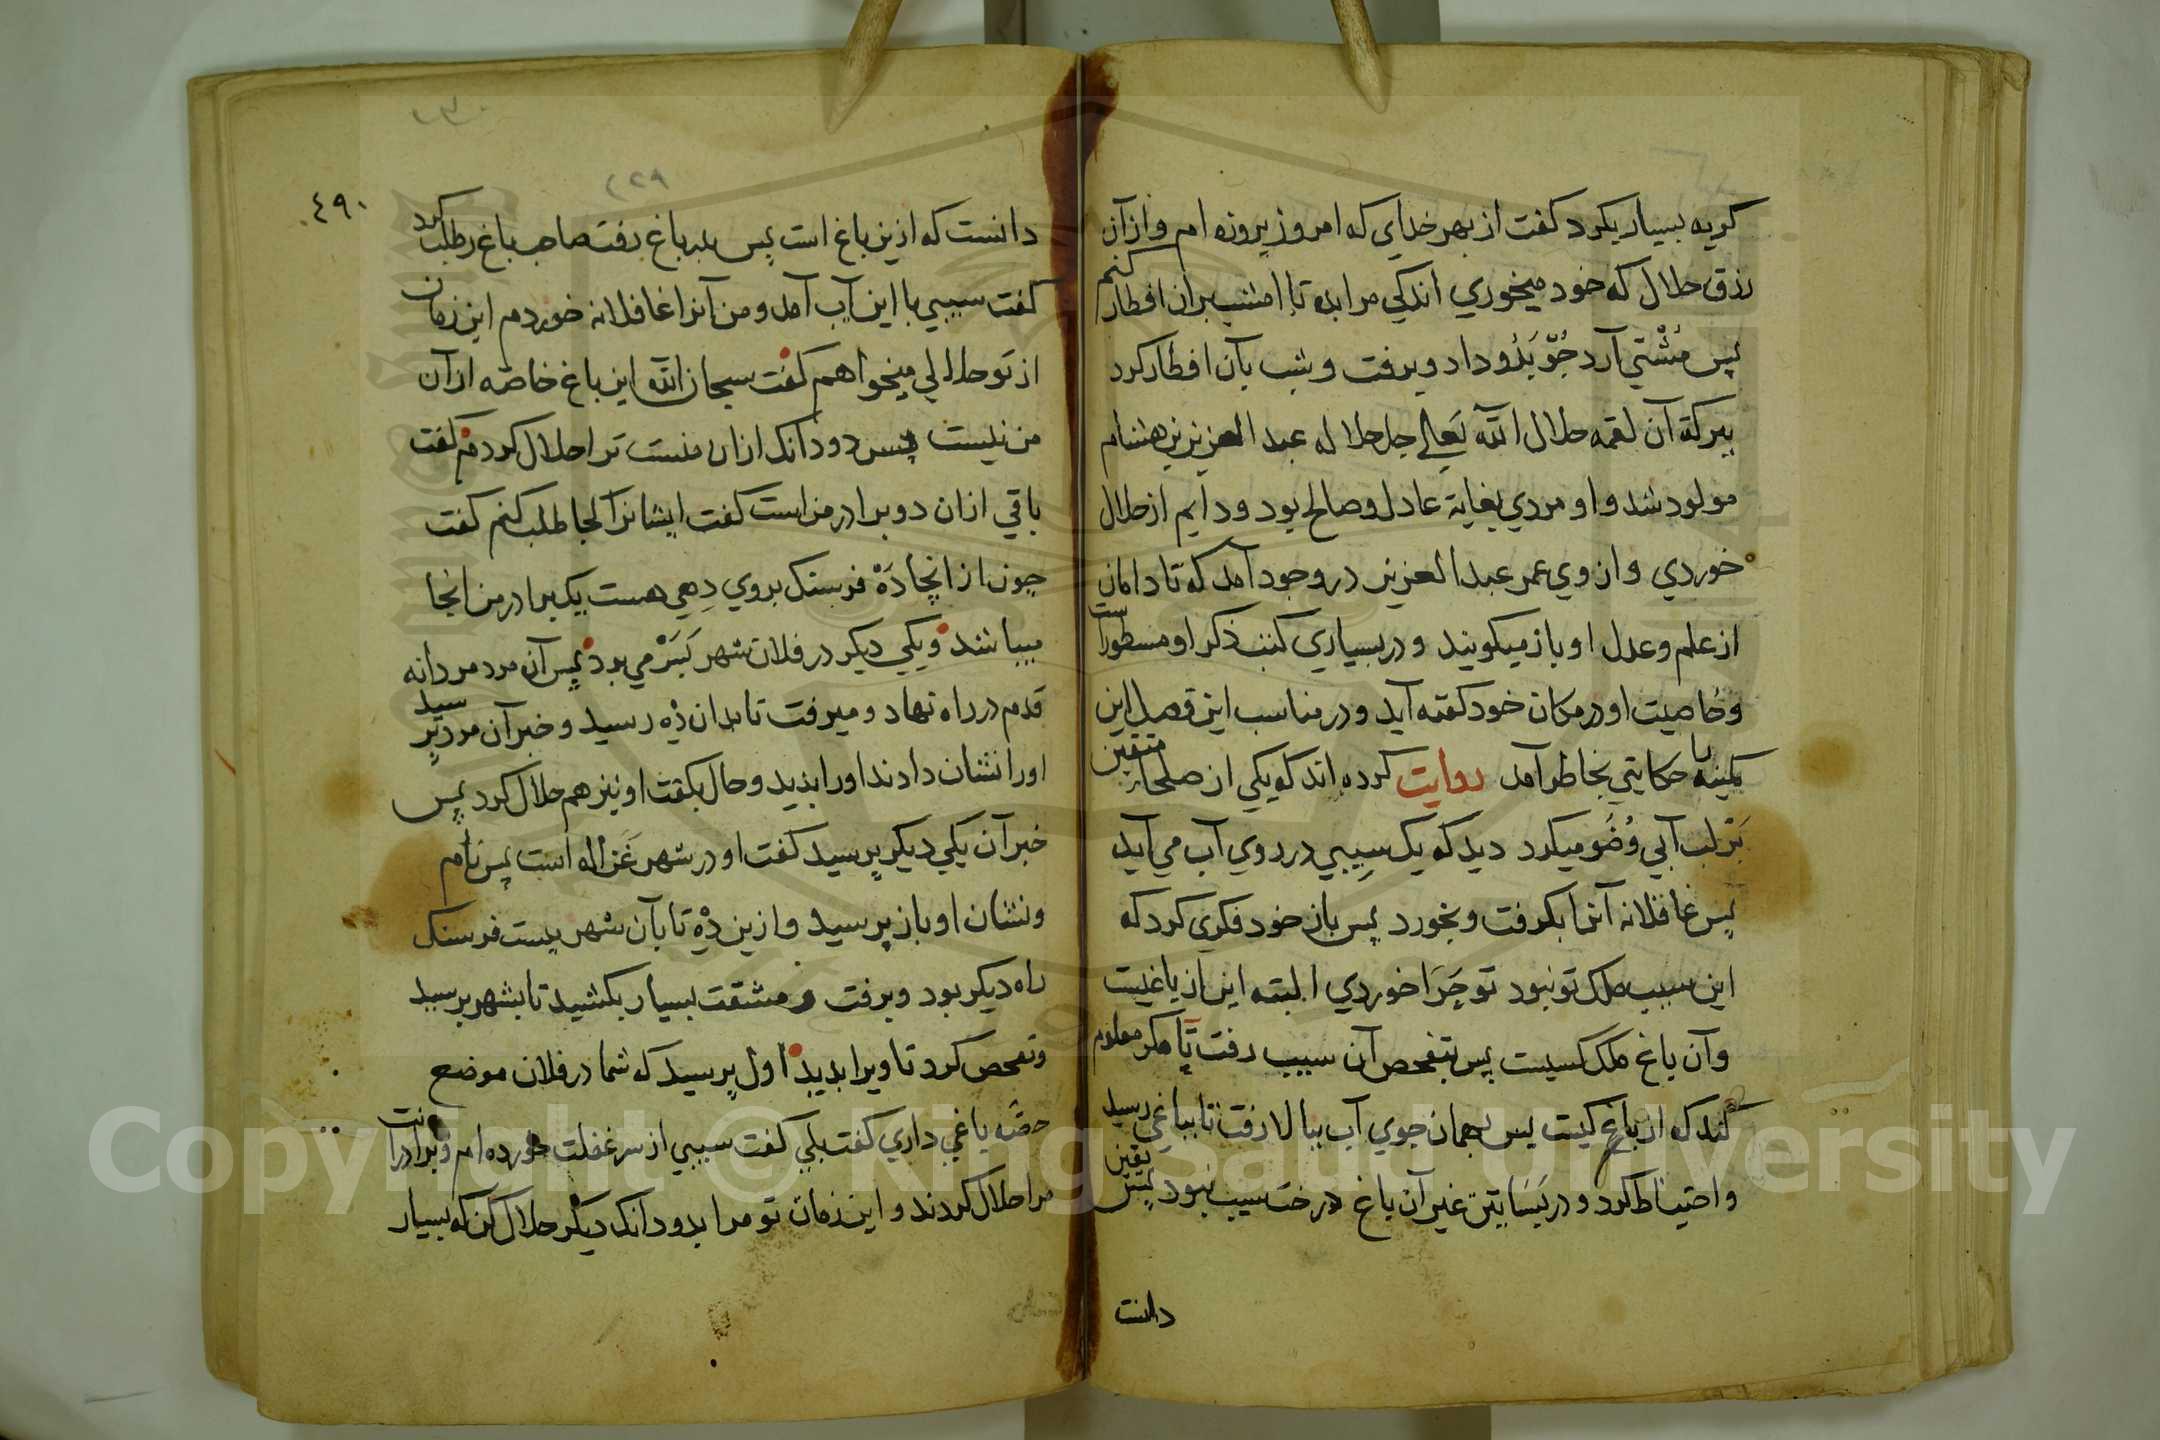 کریه بسیار بکرد کفت از بهر خدای که امروز بروزه ام و از آن
رزق حلال که خود میخوری اندکی مرا بده تا امشب بران افطار کنم
پس مُشْتي آرد جُوْ بَدُو داد و برفت و شب بآن افطار کرد
ببرکة آن لقمه حلال الله تعالي جل جلاله عبد العزیز بن هشام
مولود شد و او مردي بغایة عادل و صالح بود و دایم از حلال
خوردي و از وي عمر عبد العزیز در وجود آمد که تا دامان
از علم و عدل او باز میکویند و در بسیاري کتب ذکر او مسطور است
و خاصیت او در مکان خود کفته آید و در مناسب این فصل این
کمینه را حکایتي بخاطر آمد روایت کرده اند که یکي از صلحاء متقین
بَرْ لب آبي وُضَو میکرد دید که یک سیبي در روي آب مي آید
پس غافلانه آنرا بکرفت و بخورد پس باز خود فکری کرد که
این سیب ملک تو نبود تو چَرَا خوردي البته این از باغیست
و آن باغ ملک کسیست پس بتفحص آن سیب رفت تا مکر معلوم
کند که از باغ کیست پس بهمان جوي آب ببالا رفت تا بباغي رسید
و احتیاط کرد و در بَسَاتین غیر آن باغ درخت سیب نبود پس یقین
دانست
٤٩٠
٢٢٩
دانست که ازین باغ است پس بدر باغ رفت صاحب باغ را طلب کرد
کفت سیبي با این آب آمد و من آنرا غافلانه خوردم این زمان
از تو حلالي میخواهم کفت سبحان الله این باغ خاصّه از آن
من نیست پس دو دانک ازان منست ترا حلال کردم کفت
باقي ازان دو برادر منست کفت ایشانرا کجا طلب کنم کفت
چون از اینجا دَهْ فرسنک بروي دِهي هست یک برادر من آنجا
میباشد و یکي دیکر در فلان شهر بَسَرْ مي برد پس آن مرد مردانه
قدم در راه نهاد و میرفت تا بدان دْه رسید و خبر آن مرد پرسید
اورا نشان دادند اورا بدید و حال بکفت او نیز هم حلال کرد پس
خبر آن یکي دیکر پرسید کفت او در شهر غزاله است پس نام
و نشان او باز پرسید و ازین دْه تا بآن شهر بیست فرسنک
راه دیکر بود و برفت و مشقت بسیار بکشید تا بشهر برسید
و تفحص کرد تا ویرا بدید اول پرسید که شما در فلان موضع
حصّه باغي داري کفت بلي کفت سیبي از سر غفلت خورده ام و برادرانت
مرا حلال کردند و این زمان تو مرا بدو دانک دیکر حلال کن که بسیار
Copyright © King Saud University